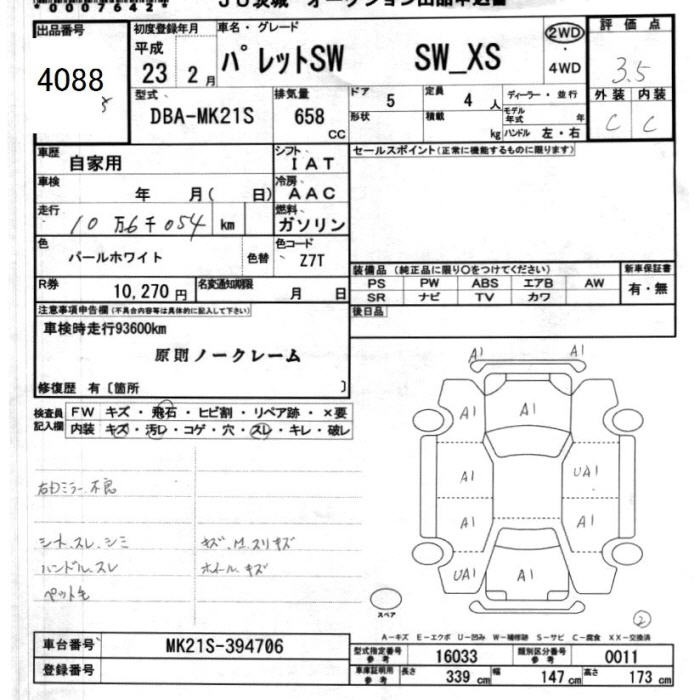 00007642
JU茨城 オークション出品申込書
出品番号
4088
初度登録年月
平成
23 2月
車名・グレード
パレットSW SW_XS
2WD
4WD
評価点
3.5
外装 内装
C C
型式
DBA-MK21S
排気量
658
CC
ドア
5
定員
4 人
ディーラー・並行
形状
積載
kg
モデル年式 年
ハンドル 左・右
車歴
自家用
シフト
IAT
セールスポイント(正常に機能するものに限ります)
車検
年 月( 日)
冷房
AAC
走行
10万6千054 km
燃料
ガソリン
色
パールホワイト
色替
色コード
Z7T
R券
10,270円
名変通知期限
月 日
装備品 (純正品に限り○をつけてください)
新車保証書
PS PW ABS エアB AW
SR ナビ TV カワ
有・無
後日品
注意事項申告欄(不具合内容等は具体的に記入して下さい)
車検時走行93600km
原則ノークレーム
修復歴 有〔箇所 〕
検査員記入欄
FW キズ・飛石・ヒビ割・リペア跡・×要
内装 キズ・汚レ・コゲ・穴・スレ・キレ・破レ
右Dミラー不良
シート、スレ、シミ
ハンドル、スレ
ペット毛
キズ、M、スリキズ
ホイール、キズ
A1 A1
A1 A1
A1 UA1
A1 A1
UA1 A1
スペア
2
A－キズ E－エクボ U－凹み W－補修跡 S－サビ C－腐食 XX－交換済
車台番号
MK21S-394706
型式指定番号
参考
16033
類別区分番号
参考
0011
登録番号
車庫証明用
参考
長さ 339 cm
幅 147 cm
高さ 173 cm